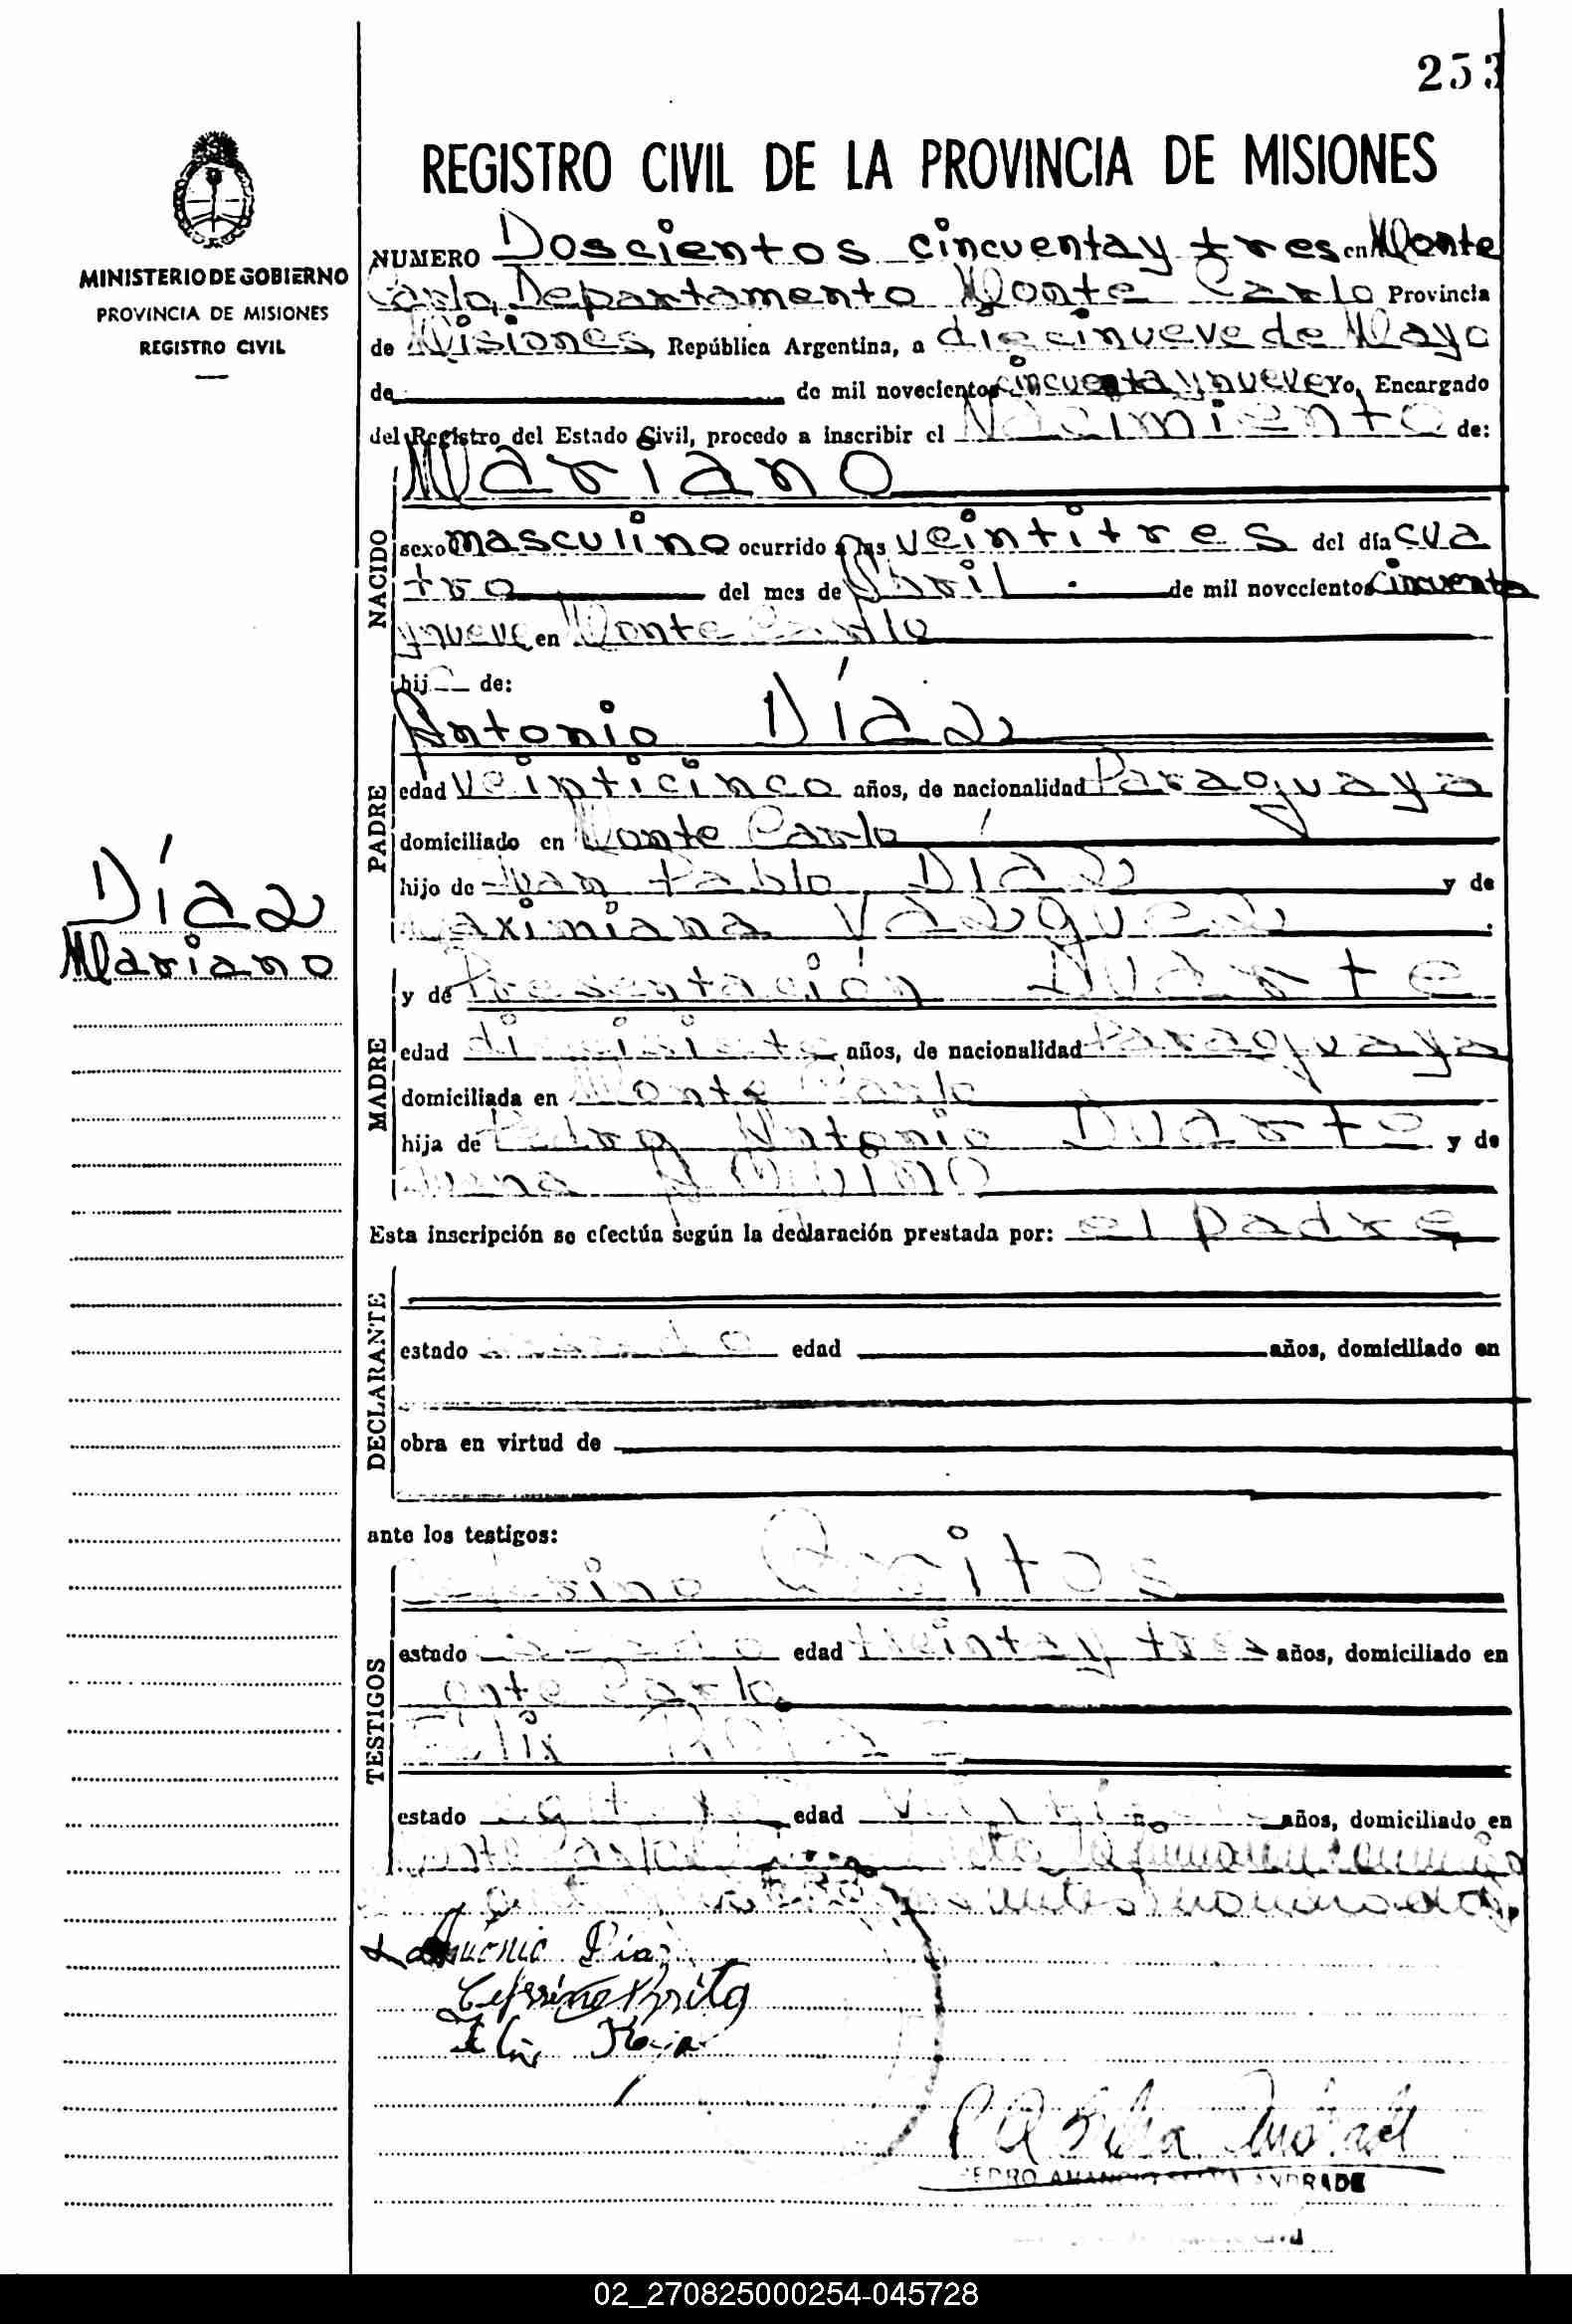 253
REGISTRO CIVIL DE LA PROVINCIA DE MISIONES
MINISTERIO DE GOBIERNO
PROVINCIA DE MISIONES
REGISTRO CIVIL
NUMERO Doscientos cincuenta y tres en Monte
Carlo, Departamento Monte Carlo Provincia
de Misiones, República Argentina, a diecinueve de Mayo
de de mil novecientos cincuenta y nueve Yo, Encargado
del Registro del Estado Civil, procedo a inscribir el Nacimiento de:
NACIDO
Mariano
sexo masculino ocurrido a las veintitres del día cua
tro del mes de Abril de mil novecientos cincuenta
y nueve en Monte Carlo
hijo de:
PADRE
Antonio Díaz
edad veinticinco años, de nacionalidad Paraguaya
domiciliado en Monte Carlo
hijo de Juan Pablo Díaz y de
Maximiana Vazquez
Díaz
Mariano
MADRE
y de Presentación Duarte
edad años, de nacionalidad Paraguaya
domiciliada en Monte Carlo
hija de Pedro Antonio Duarte y de
Esta inscripción se efectúa según la declaración prestada por: el padre
DECLARANTE
estado edad años, domiciliado en
obra en virtud de
ante los testigos:
TESTIGOS
Britos
estado edad treinta y tres años, domiciliado en
onte Carlo
estado edad años, domiciliado en
Antonio Díaz
PEDRO ANDRADE
02_270825000254-045728